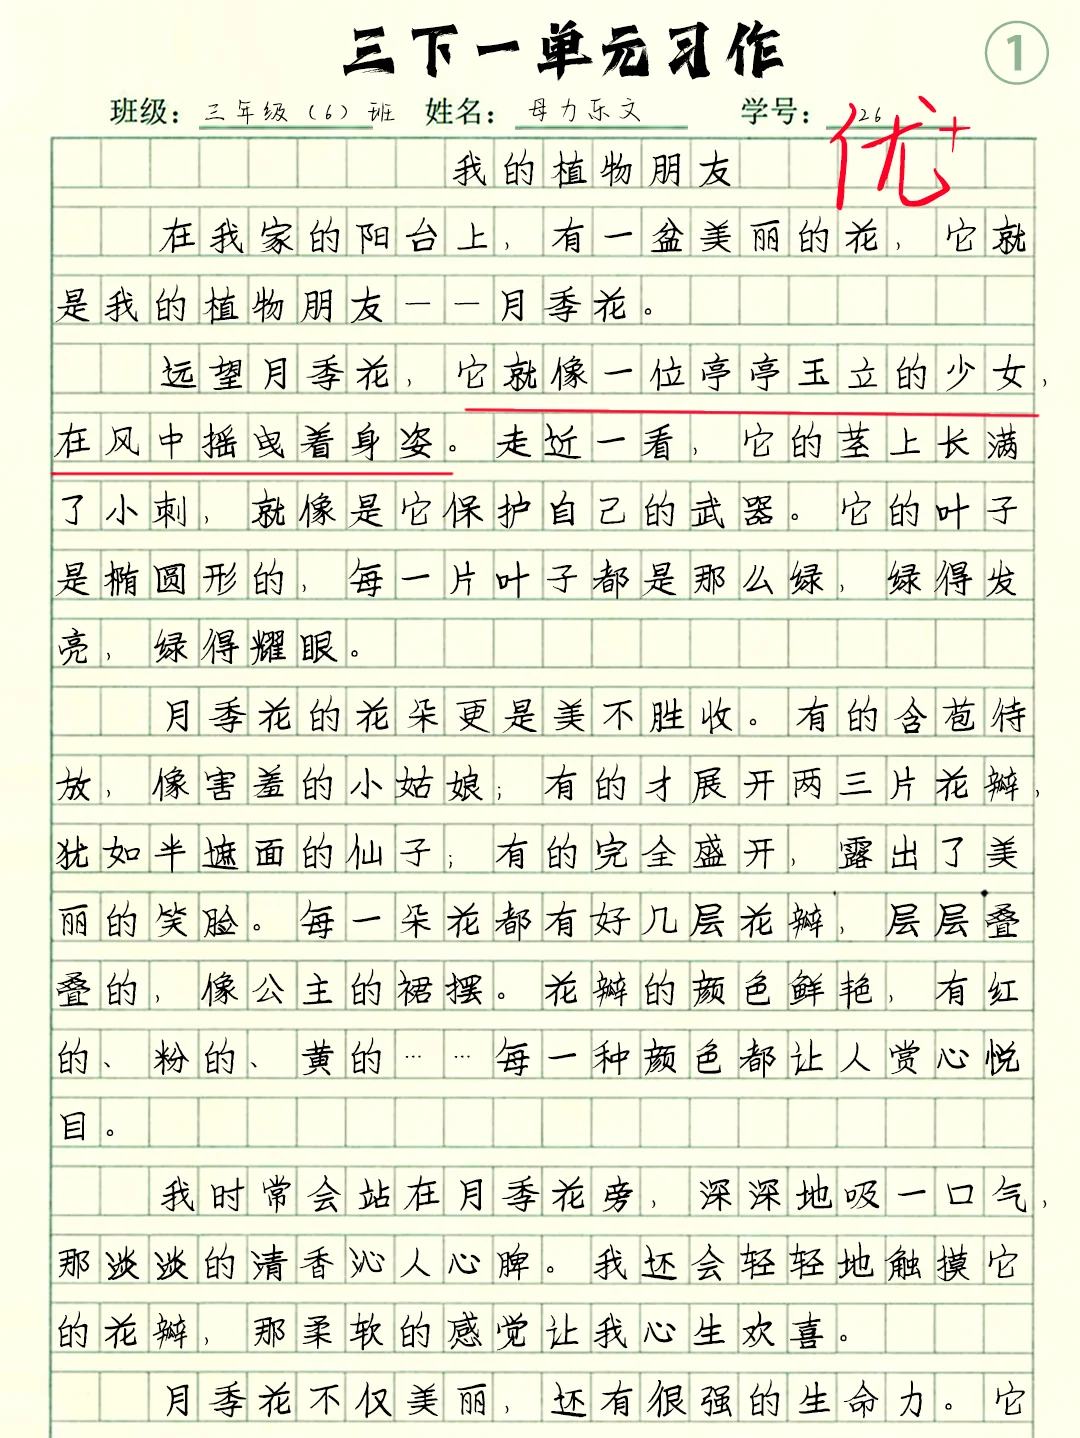 三下一单元习作
1
班级：三年级（6）班 姓名：母力乐文 学号：26
优+
我的植物朋友
在我家的阳台上，有一盆美丽的花，它就
是我的植物朋友——月季花。
远望月季花，它就像一位亭亭玉立的少女，
在风中摇曳着身姿。走近一看，它的茎上长满
了小刺，就像是它保护自己的武器。它的叶子
是椭圆形的，每一片叶子都是那么绿，绿得发
亮，绿得耀眼。
月季花的花朵更是美不胜收。有的含苞待
放，像害羞的小姑娘；有的才展开两三片花瓣，
犹如半遮面的仙子；有的完全盛开，露出了美
丽的笑脸。每一朵花都有好几层花瓣，层层叠
叠的，像公主的裙摆。花瓣的颜色鲜艳，有红
的、粉的、黄的……每一种颜色都让人赏心悦
目。
我时常会站在月季花旁，深深地吸一口气，
那淡淡的清香沁人心脾。我还会轻轻地触摸它
的花瓣，那柔软的感觉让我心生欢喜。
月季花不仅美丽，还有很强的生命力。它